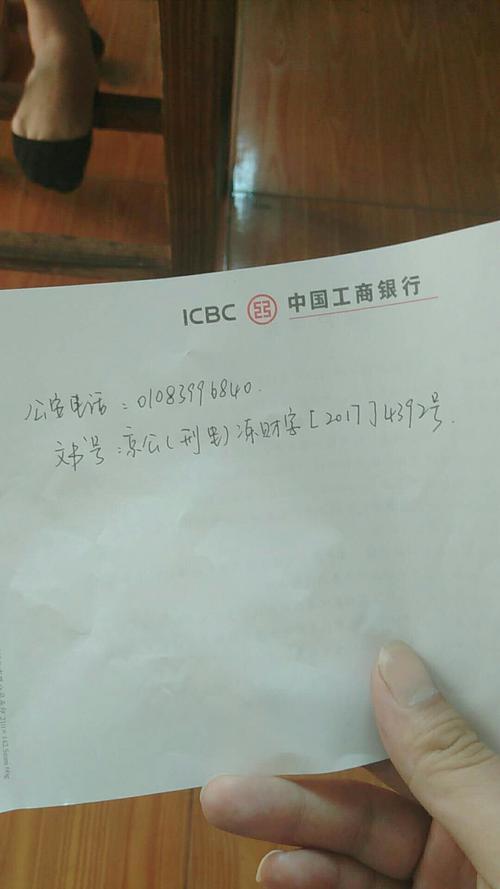 ICBC 中国工商银行
公安电话:01083996840.
文书号:京公(刑电)冻财字[2017]4392号.